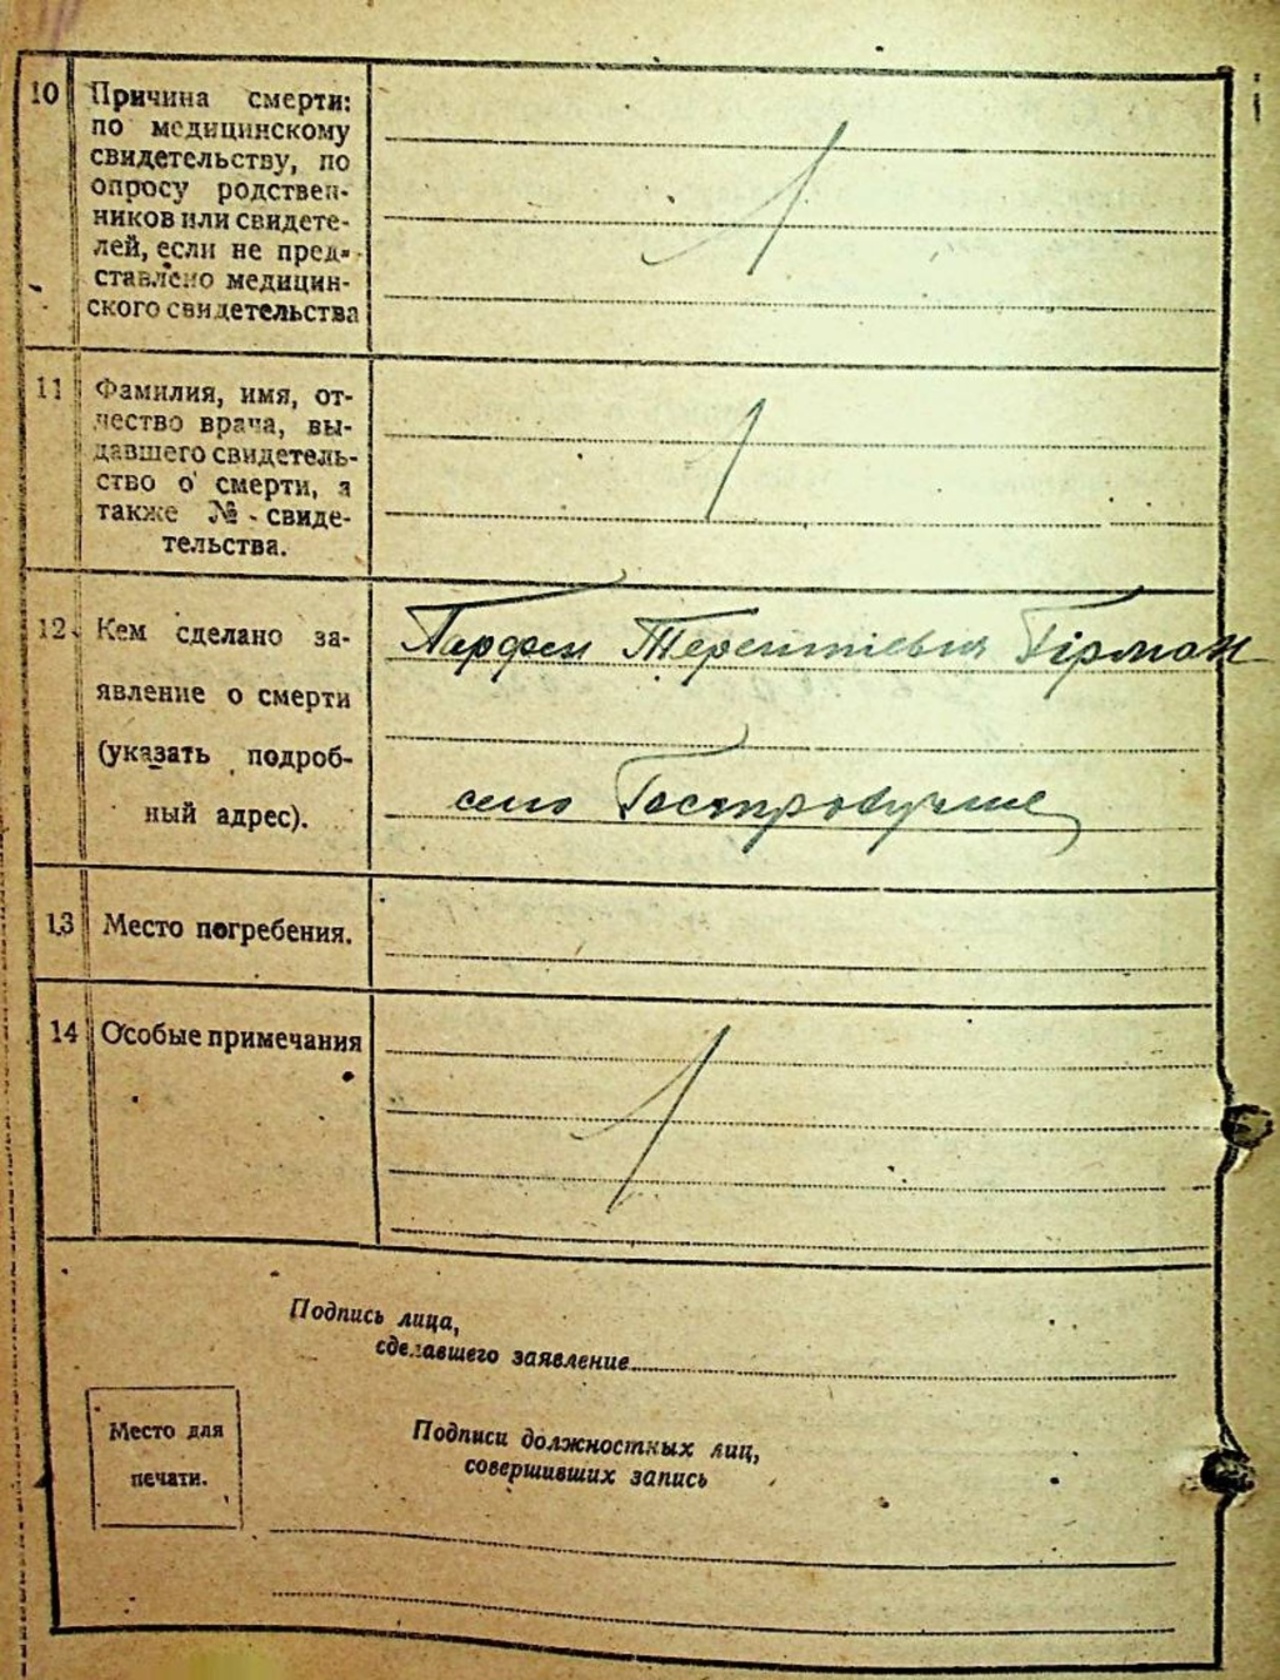 10 Причина смерти:
по медицинскому
свидетельству, по
опросу родствен-
ников или свидете-
лей, если не пред-
ставлено медицин-
ского свидетельства
11 Фамилия, имя, от-
чество врача, вы-
давшего свидетель-
ство о смерти, а
также № свиде-
тельства.
12. Кем сделано за-
явление о смерти
(указать подроб-
ный адрес).
Парфен Терентіевич Гірман
село
13 Место погребения.
14 Особые примечания
Подпись лица,
сделавшего заявление
Место для
печати.
Подписи должностных лиц,
совершивших запись